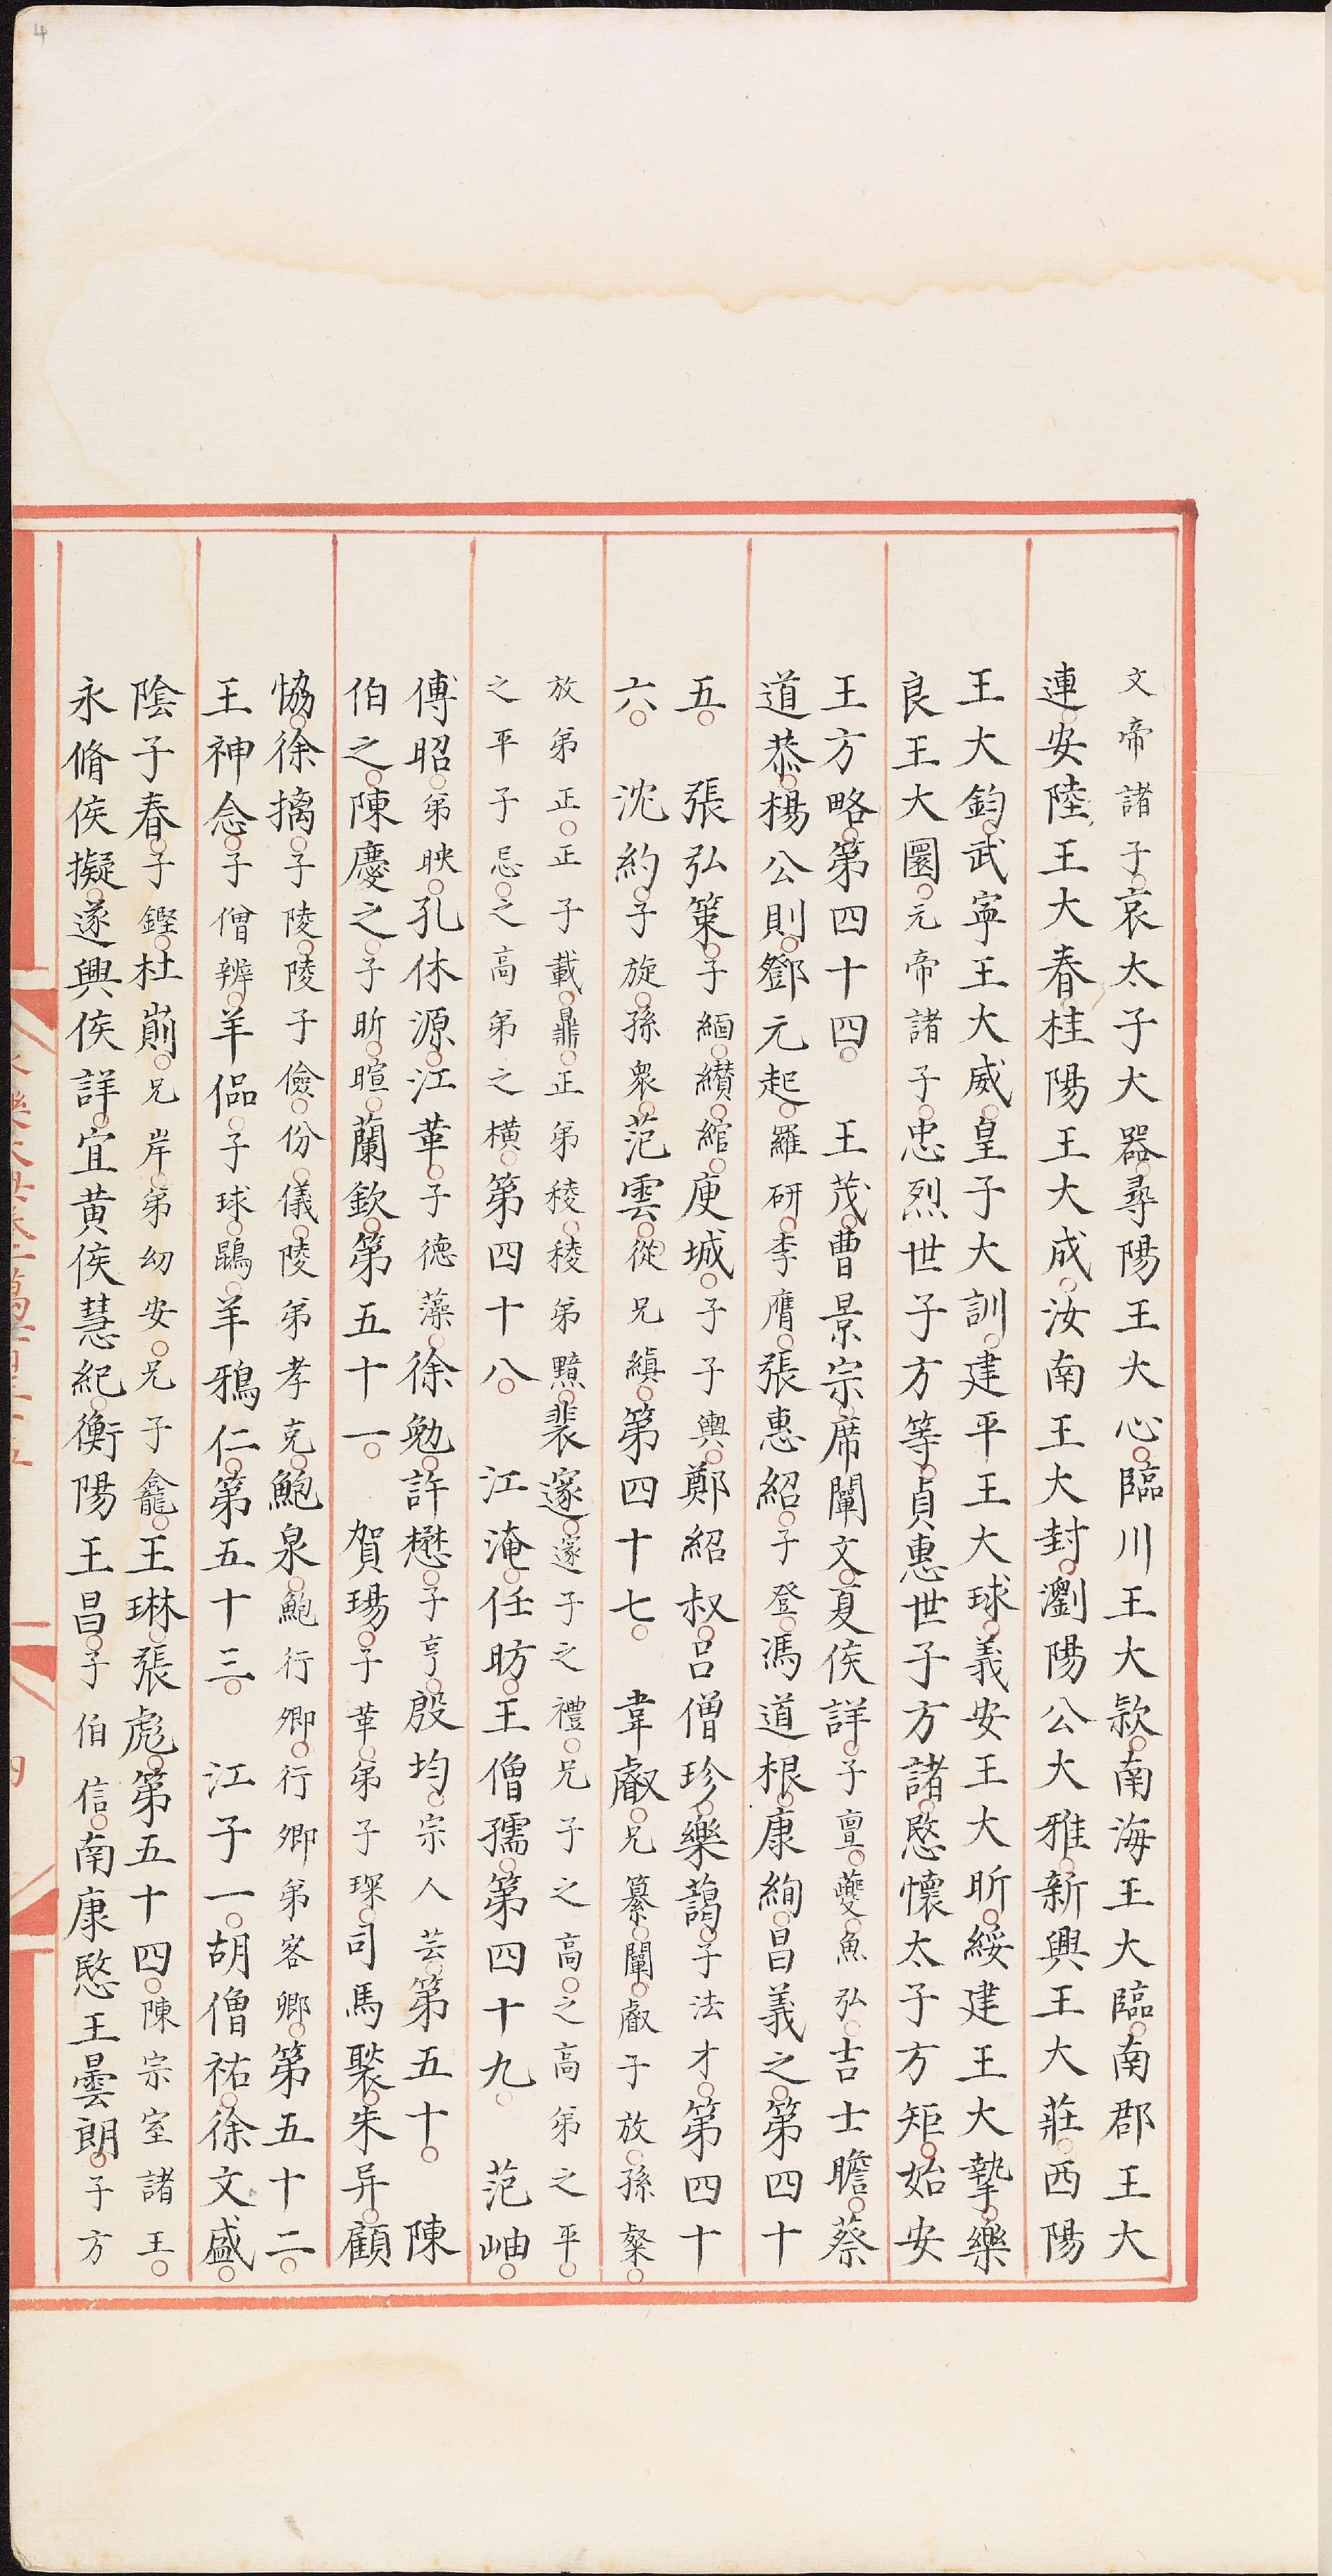 文帝諸子哀太子大器尋陽王大心臨川王大款南海王大臨南郡王大
連安陸王大春桂陽王大成汝南王大封瀏陽公大雅新興王大莊西陽
王大鈞武寧王大威皇子大訓建平王大球義安王大昕綏建王大摯樂
良王大圜元帝諸子忠烈世子方等貞惠世子方諸愍懷太子方矩始安
王方略第四十四 王茂曹景宗席闡文夏侯詳子亶夔魚弘吉士瞻蔡
道恭楊公則鄧元起羅研李膺張惠紹子登馮道根康絢昌義之第四十
五 張弘策子緬纘綰庾域子子輿鄭紹叔呂僧珍樂藹子法才第四十
六 沈約子旋孫衆范雲從兄縝第四十七 韋叡兄纂闡叡子放孫粲
放弟正正子載鼎正弟稜稜弟黯裴邃邃子之禮兄子之高之高弟之平
之平子忌之高弟之橫第四十八 江淹任昉王僧孺第四十九 范岫
傅昭弟映孔休源江革子德藻徐勉許懋子亨殷均宗人芸第五十 陳
伯之陳慶之子昕暄蘭欽第五十一 賀瑒子革弟子琛司馬褧朱异顧
恊徐摛子陵陵子儉份儀陵弟孝克鮑泉鮑行卿行卿弟客卿第五十二
王神念子僧辨羊侃子球鵾羊鴉仁第五十三 江子一胡僧祐徐文盛
陰子春子鏗杜崱兄岸弟幼安兄子龕王琳張彪第五十四陳宗室諸王
永脩侯擬遂興侯詳宜黄侯慧紀衡陽王昌子伯信南康愍王曇朗子方
4